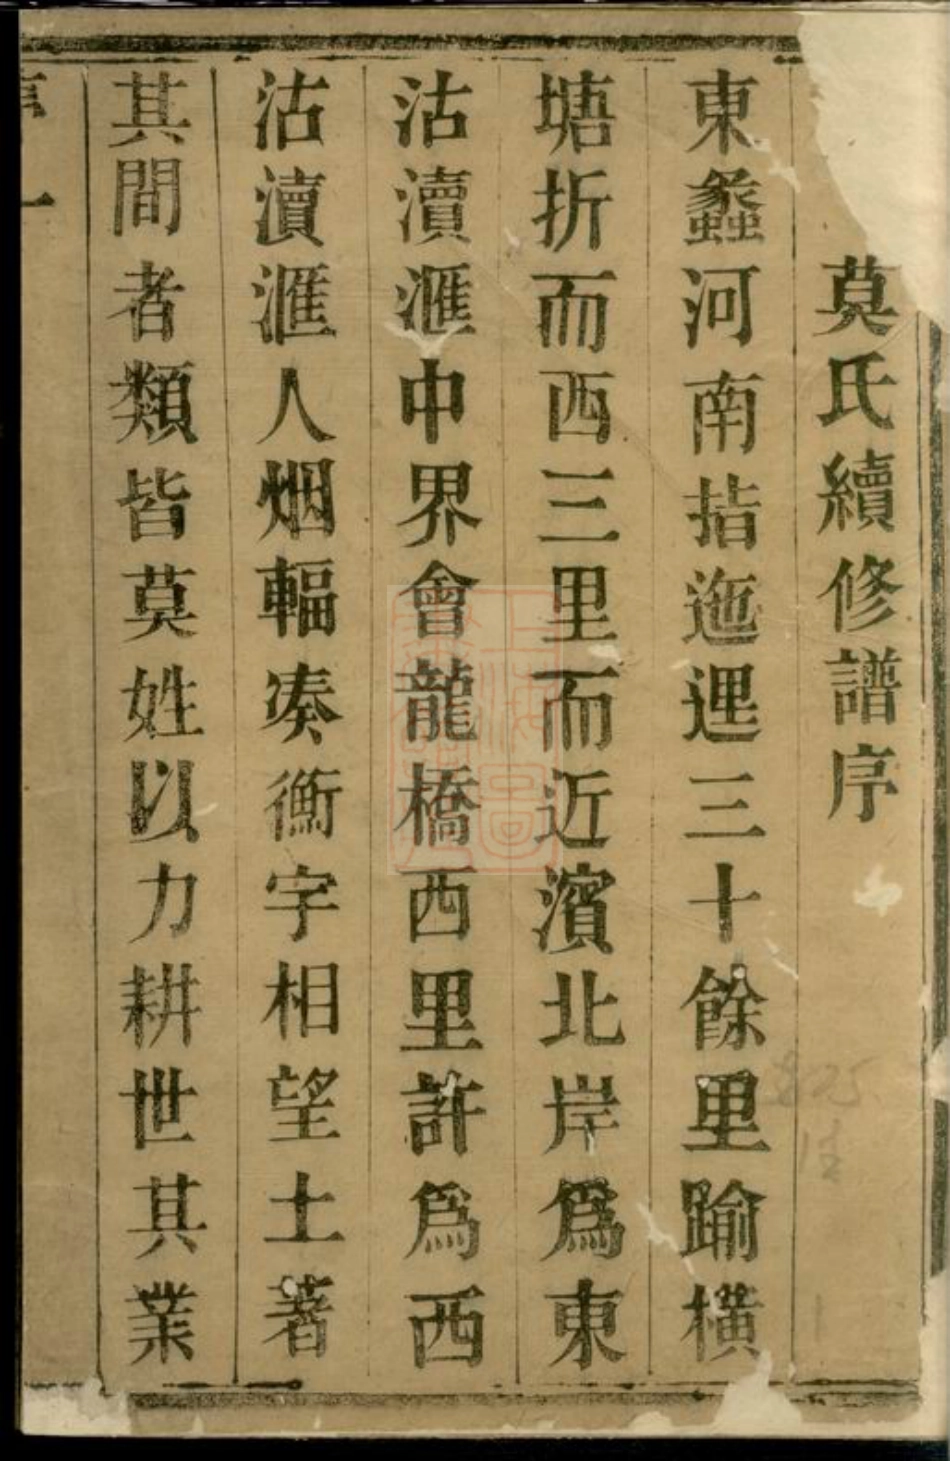 莫氏續修譜序
東蠡河南指迤邐三十餘里踰橫
塘折而西三里而近濱北岸爲東
沽瀆滙中界會龍橋西里許爲西
沽瀆滙人烟輻凑衡宇相望土著
其間者類皆莫姓以力耕世其業
序 一